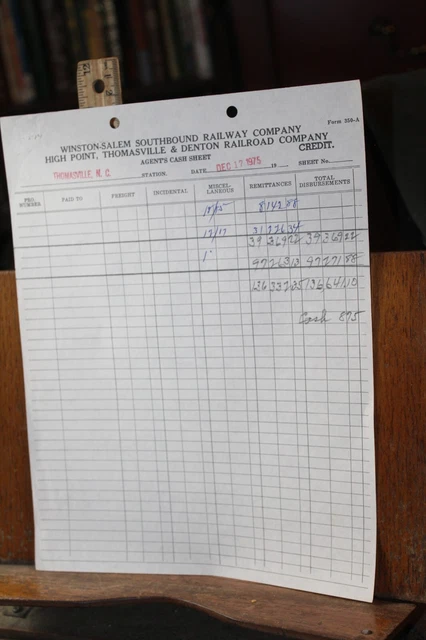 Form 350-A
WINSTON-SALEM SOUTHBOUND RAILWAY COMPANY
HIGH POINT, THOMASVILLE & DENTON RAILROAD COMPANY
AGENT'S CASH SHEET CREDIT.
THOMASVILLE, N. C. STATION. DATE DEC 17 1975 19 SHEET No.
PRO. NUMBER PAID TO FREIGHT INCIDENTAL MISCEL-LANEOUS REMITTANCES TOTAL DISBURSEMENTS
12/15 8142 88
12/17 31226 34
39369 22 39369 22
97271 88
Cash 875